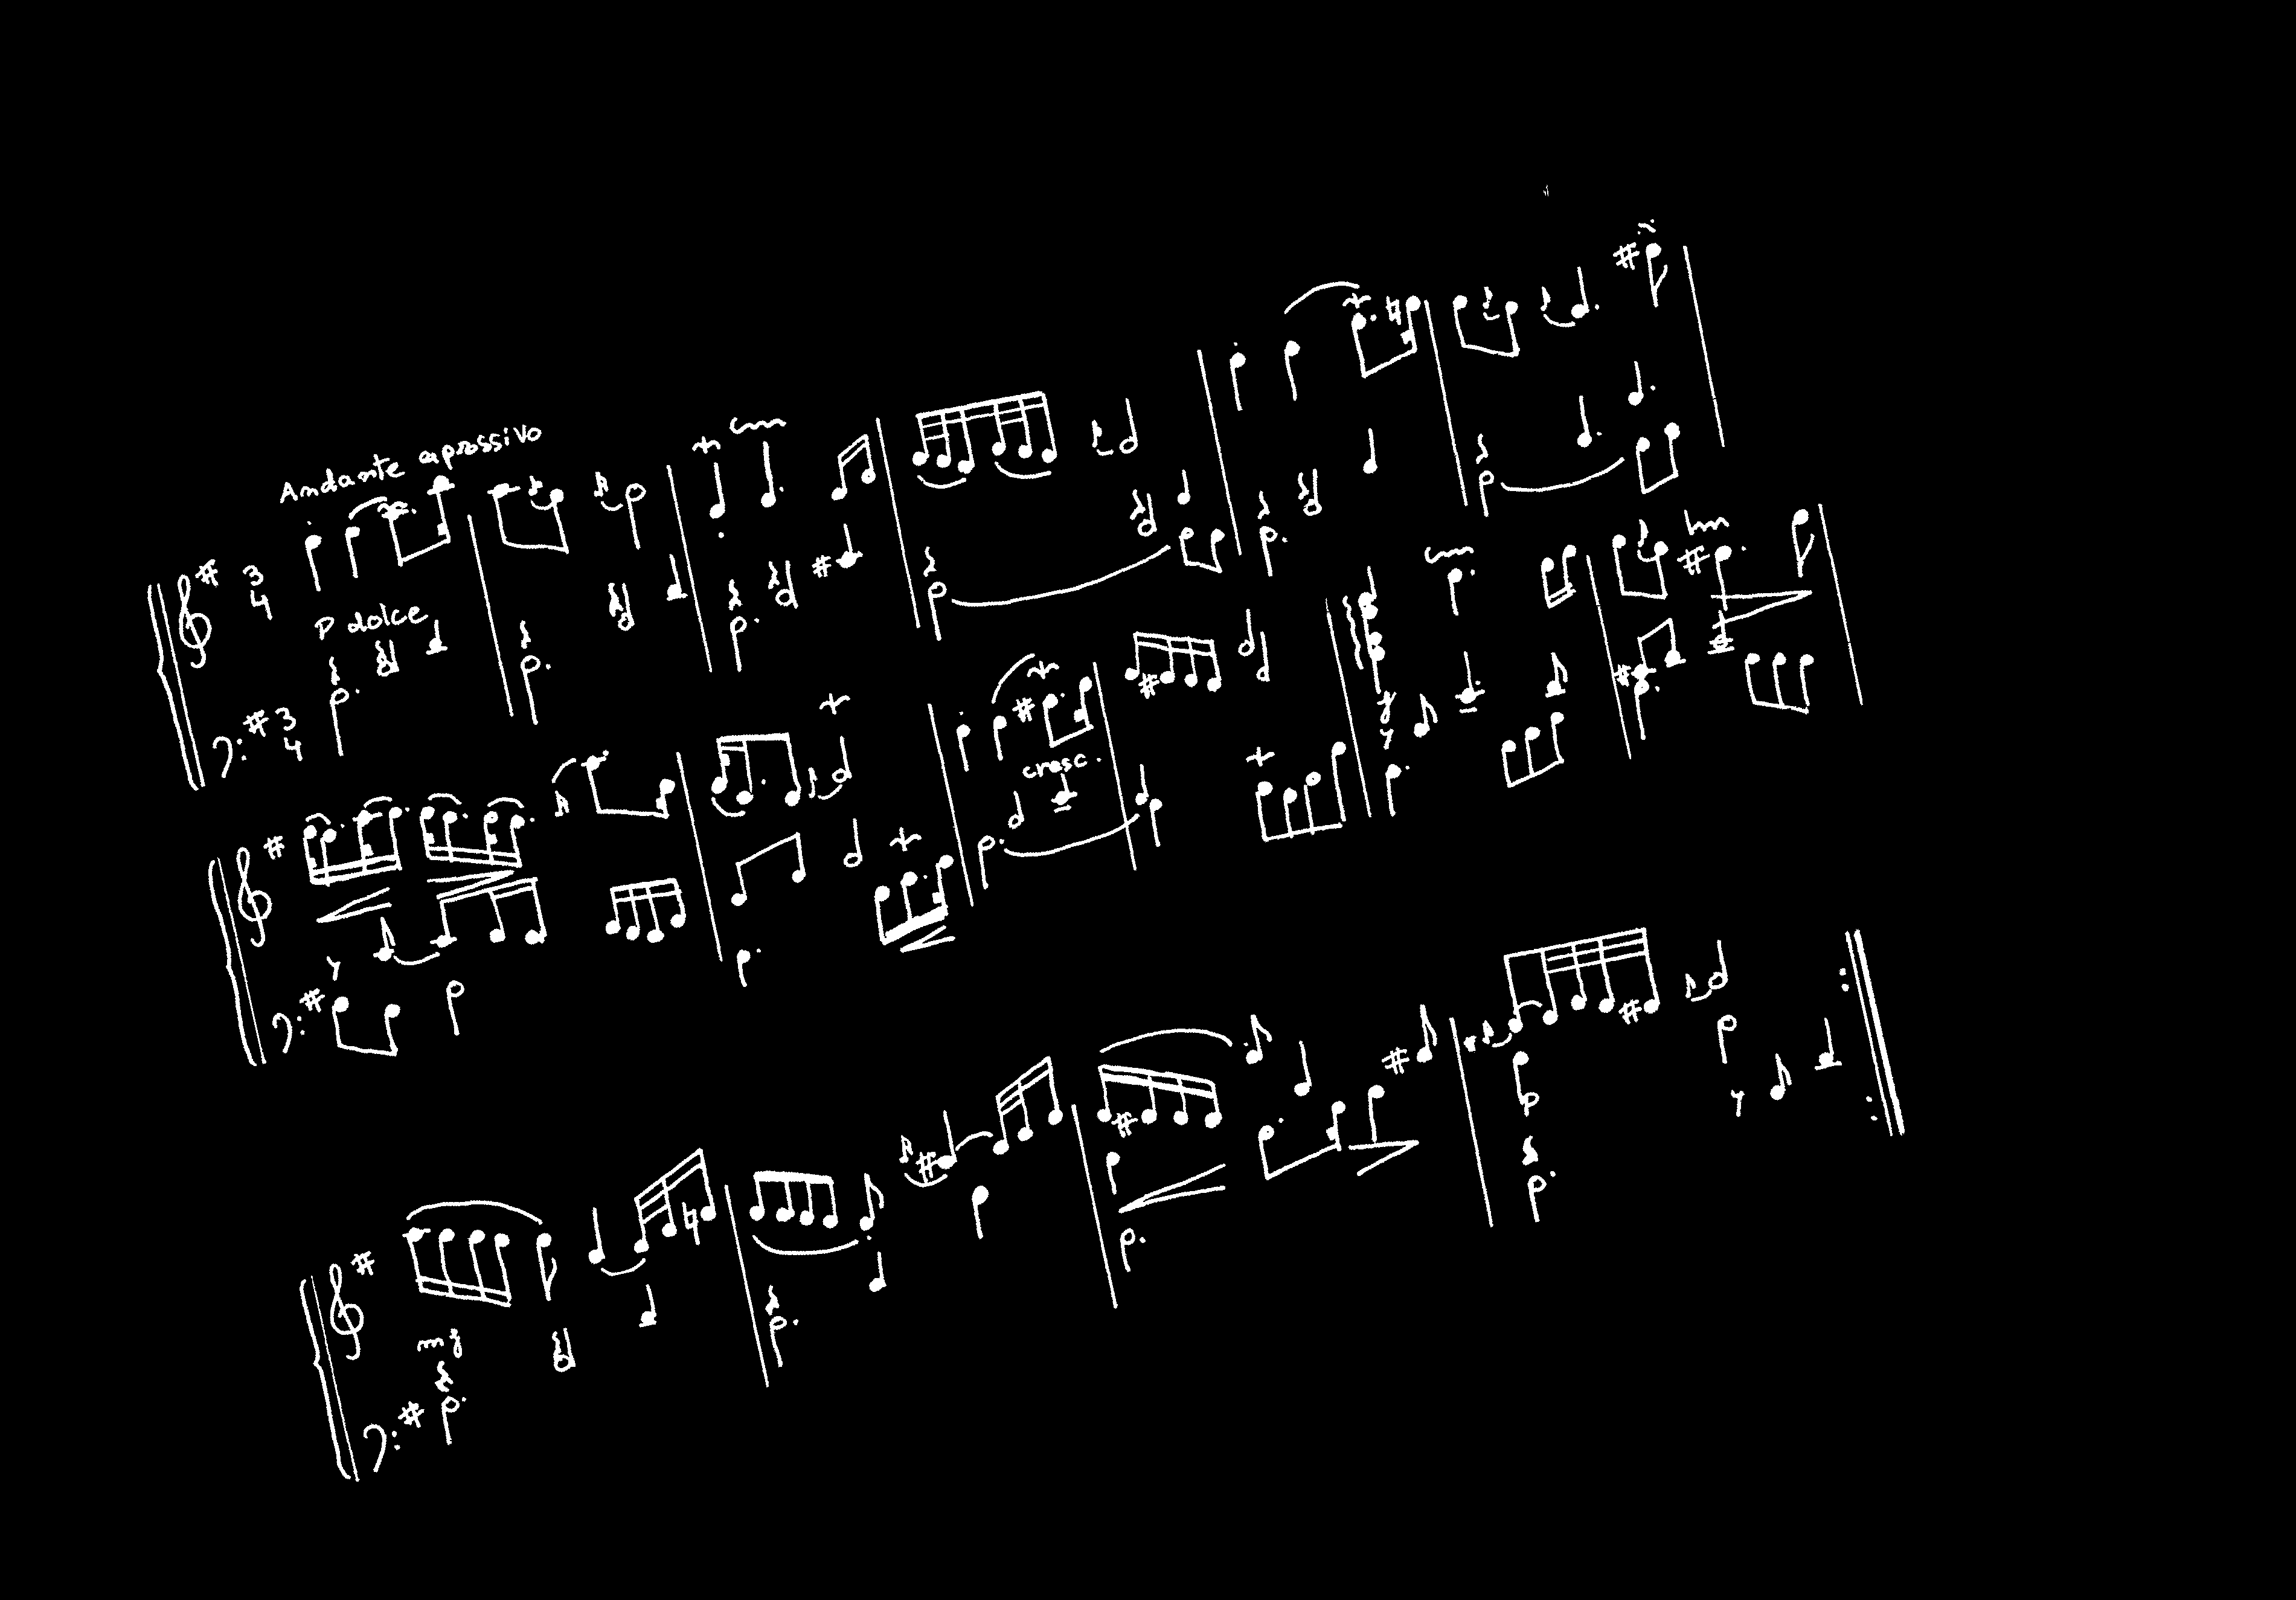 Andante aprossivo
3
4
P dolce
3
4
cresc.
f
mf